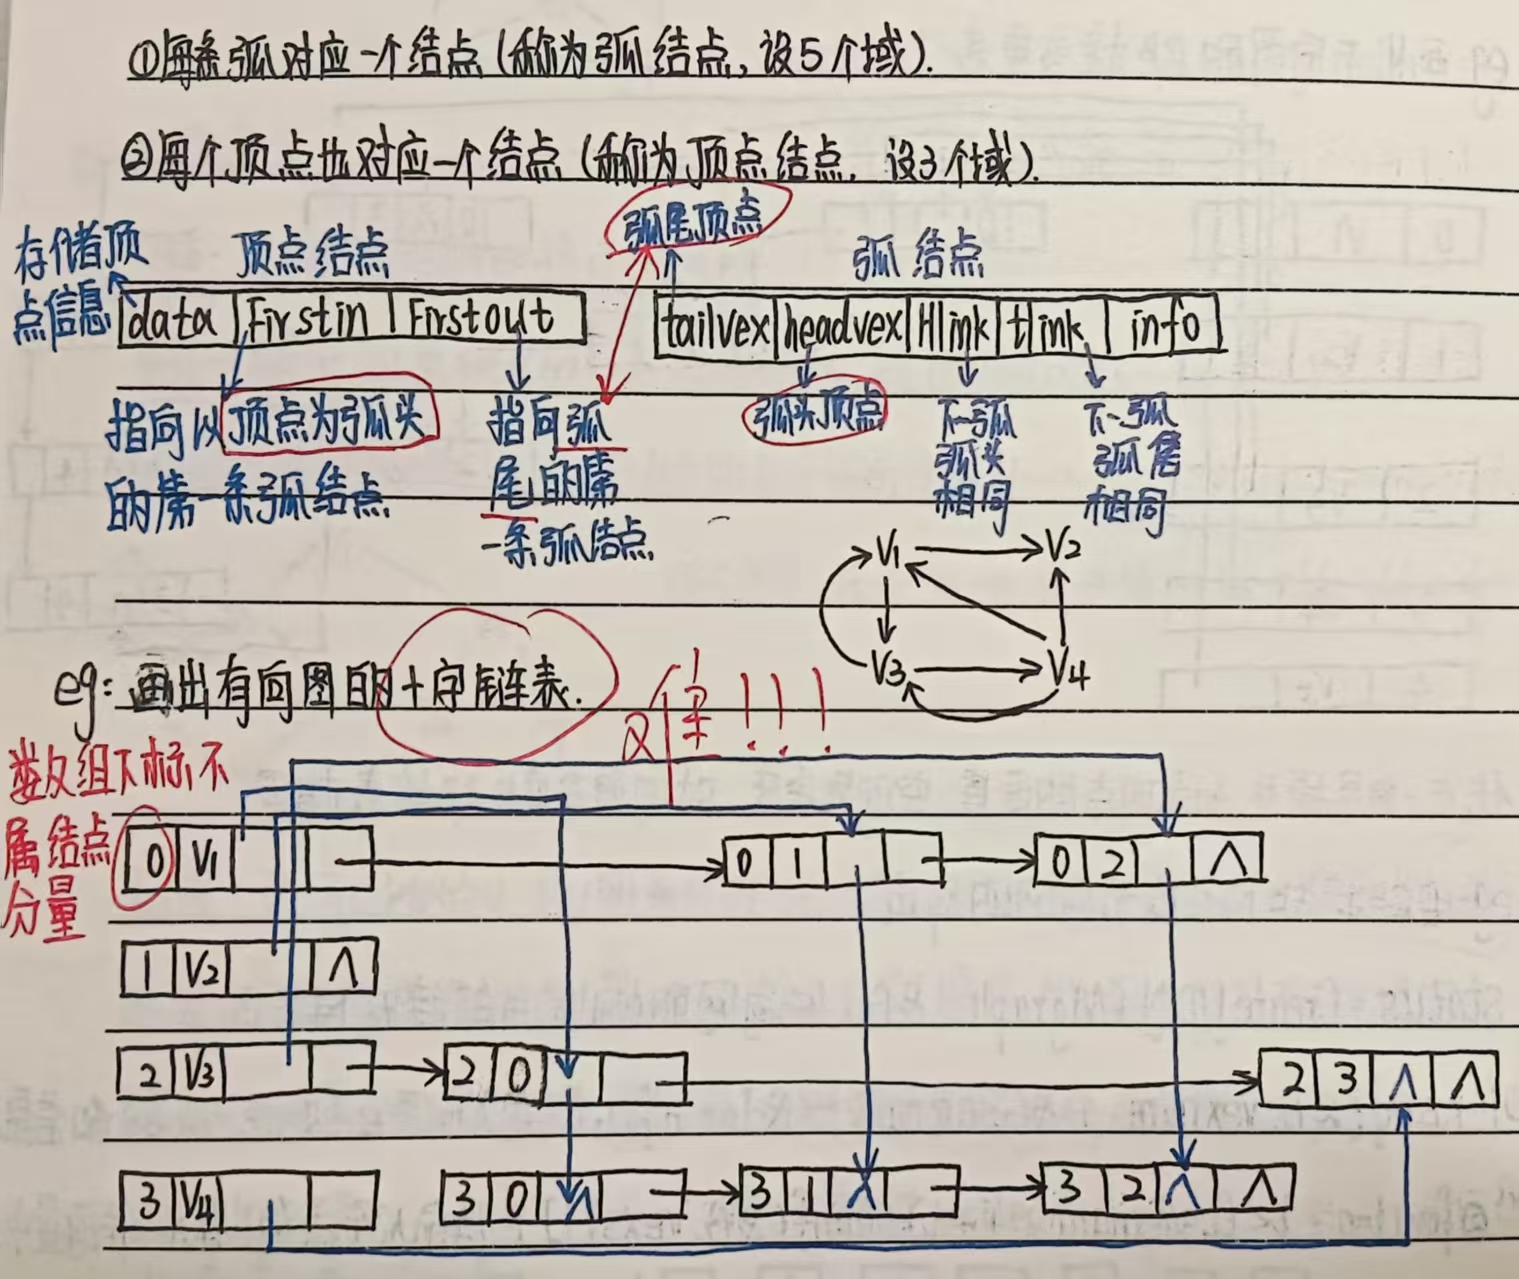 ①每条弧对应一个结点(称为弧结点,设5个域).
②每个顶点也对应一个结点(称为顶点结点,设3个域).
弧尾顶点
存储顶点信息
顶点结点
弧结点
data Firstin Firstout
tailvex headvex Hlink tlink info
指向以顶点为弧头的第一条弧结点
指向弧尾的第一条弧结点
弧头顶点
下一弧弧头相同
下一弧弧尾相同
V1 V2
V3 V4
eg:画出有向图的十字链表.
!!!
数组下标不属结点分量
0 V1
0 1
0 2 ∧
1 V2 ∧
2 V3
2 0
2 3 ∧ ∧
3 V4
3 0 ∧
3 1 ∧
3 2 ∧ ∧